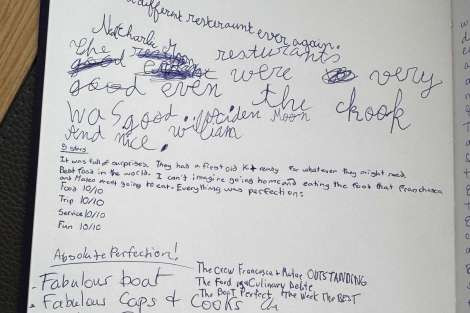 different restiraunt ever again.
Not Charlk Moon
the resturants
good were very
good even the chook
was good. Moon
And nice. william
It was full of surprises. They had a first aid kit ready for whatever they might need.
Best food in the world. I can't imagine going home and eating the food that Franchesca
and Mateo arent going to eat. Everything was perfection:
Food 10/10
Trip 10/10
Service 10/10
Fun 10/10
Absolute Perfection!
The Crew Francesca + Matae OUTSTANDING
Fabulous boat
The Food Culinary
The Boat Perfect The Week The BEST
- Fabulous Caps & Cooks